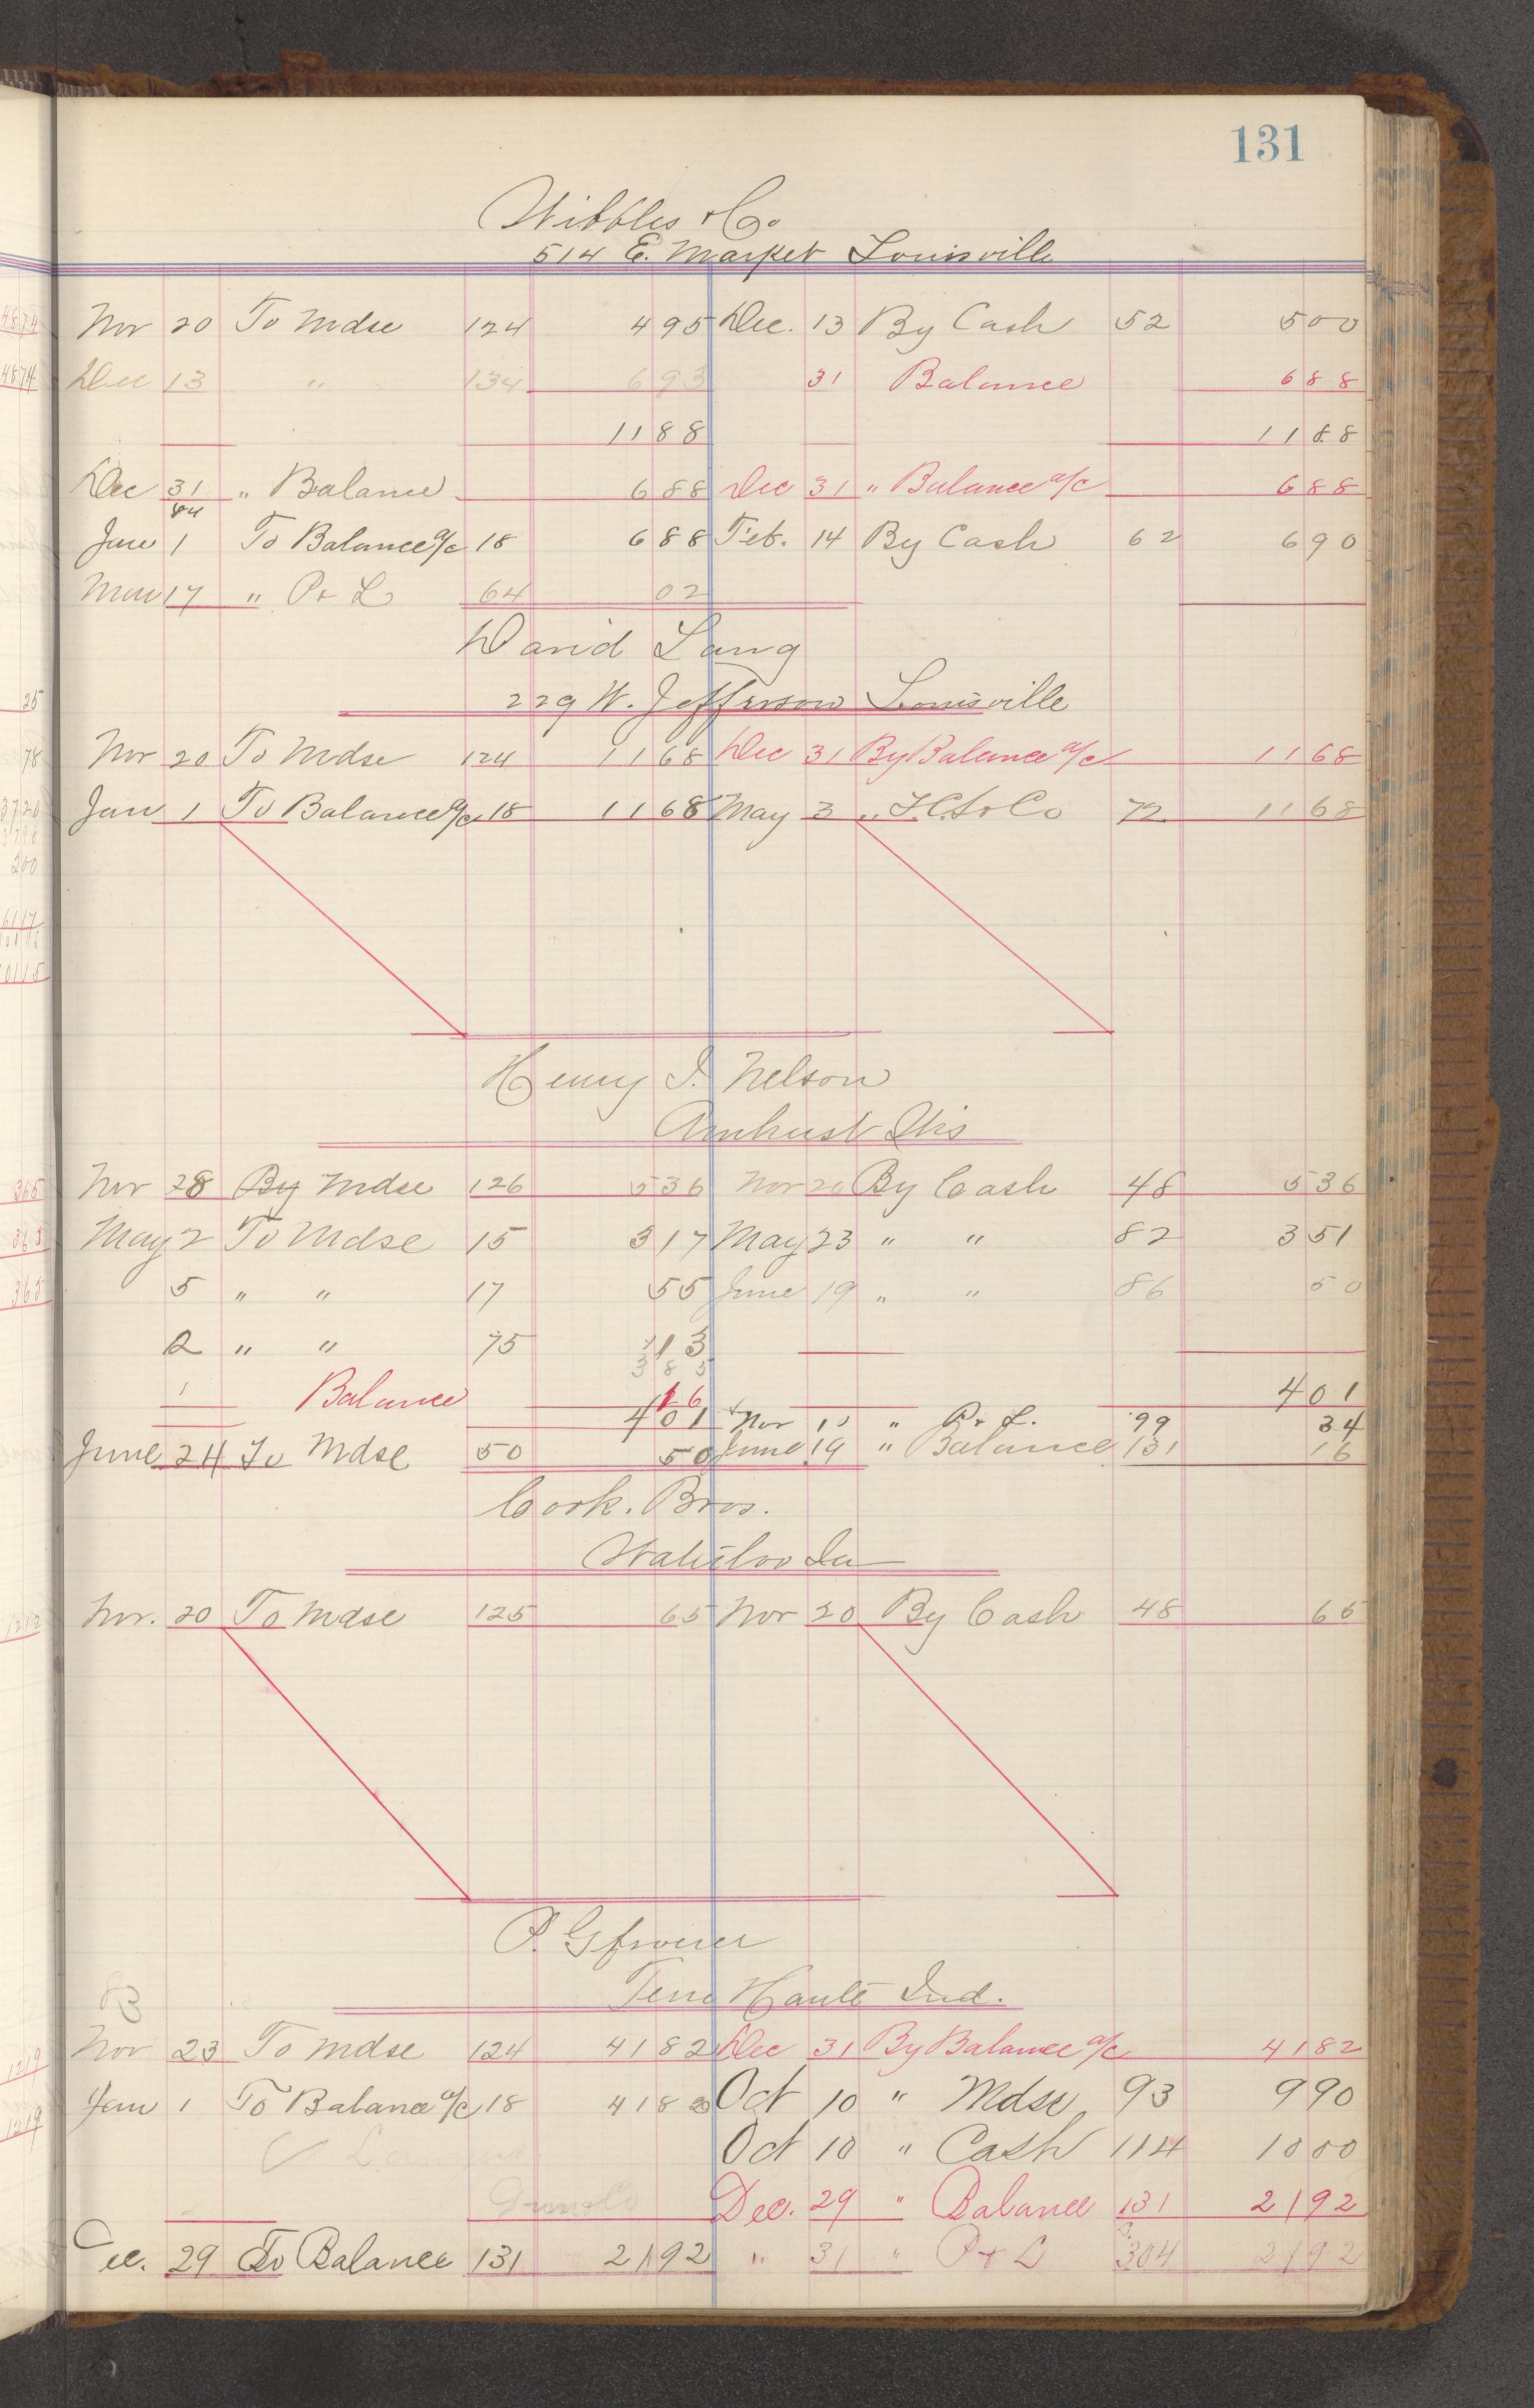 131
Wibbles & Co.
514 E. Market Louisville
Nov 20 To Mdse 124 4 95 Dec. 13 By Cash 52 5 00
Dec 13 " 134 6 93 31 Balance 6 88
11 88 11 88
Dec 31 " Balance 6 88 Dec 31 " Balance a/c 6 88
84
Jan 1 To Balance a/c 18 6 88 Feb. 14 By Cash 62 6 90
Mar 17 " P & L 64 02
David Lang
229 W. Jefferson Louisville
Nov 20 To Mdse 124 11 68 Dec 31 By Balance a/c 11 68
Jan 1 To Balance a/c 18 11 68 May 3 " F.C.S & Co 72 11 68
Henry I. Nelson
Amhurst Wis
Nov 28 By Mdse 126 5 36 Nov 20 By Cash 48 5 36
May 2 To Mdse 15 3 17 May 23 " " 82 3 51
5 " " 17 55 June 19 " " 86 50
2 " " 75 13
3 8 5
1 Balance 16 4 01
4 01 Nov 10 " P & L. 99 34
June 24 To Mdse 50 50 June 19 " Balance 131 16
Cook. Bros.
Waterloo Ia
Nov. 20 To Mdse 125 65 Nov 20 By Cash 48 65
P. Gfroerer
Terre Haute Ind.
Nov 23 To Mdse 124 41 82 Dec 31 By Balance a/c 41 82
Jan 1 To Balance a/c 18 41 82 Oct 10 " Mdse 93 9 90
Oct 10 " Cash 114 10 00
Dec. 29 " Balance 131 21 92
Dec. 29 To Balance 131 21 92 " 31 " P & L 304 21 92